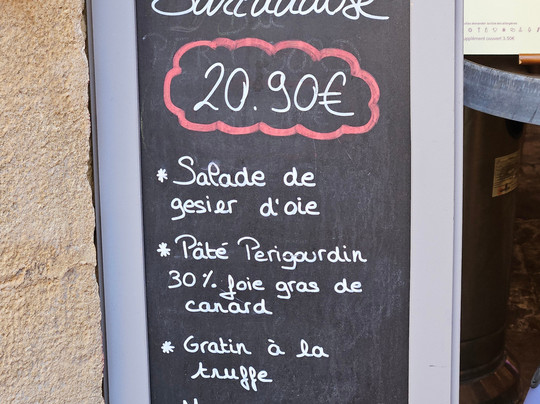 20.90€
* Salade de
gesier d'oie
* Pâté Perigourdin
30% foie gras de
canard
* Gratin à la
truffe